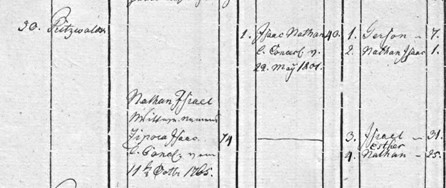 30. Pritzwalk
1. Isaac Nathan 40.
C. Concess. v.
29. May 1801.
1. Gerson - 7.
2. Nathan Isaac 1.
Nathan Israel
Wittwe
Zipora Isaac 74
C. Concess. v.
11t Octbr 1765.
3. Israel - 31.
Esther
4. Nathan - 25.